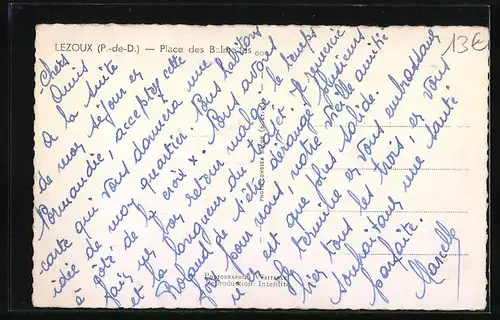 LEZOUX (P.-de-D.) — Place des
13€
Chers Amis
A la suite
de mon séjour en
Normandie, acceptez cette
carte qui vous donnera une
idée de mon quartier. Nous habitons
à côté de la croix x. Nous avons
fait un bon retour malgré le temps
et la longueur du trajet. Je remercie
Roland de s'être dérangé plusieurs
fois pour nous, notre vieille amitié
n'en est que plus solide.
Je termine en vous embrassant
bien tous les trois, et vous
souhaitant une santé
parfaite.
Marcelle
Reproduction Interdite